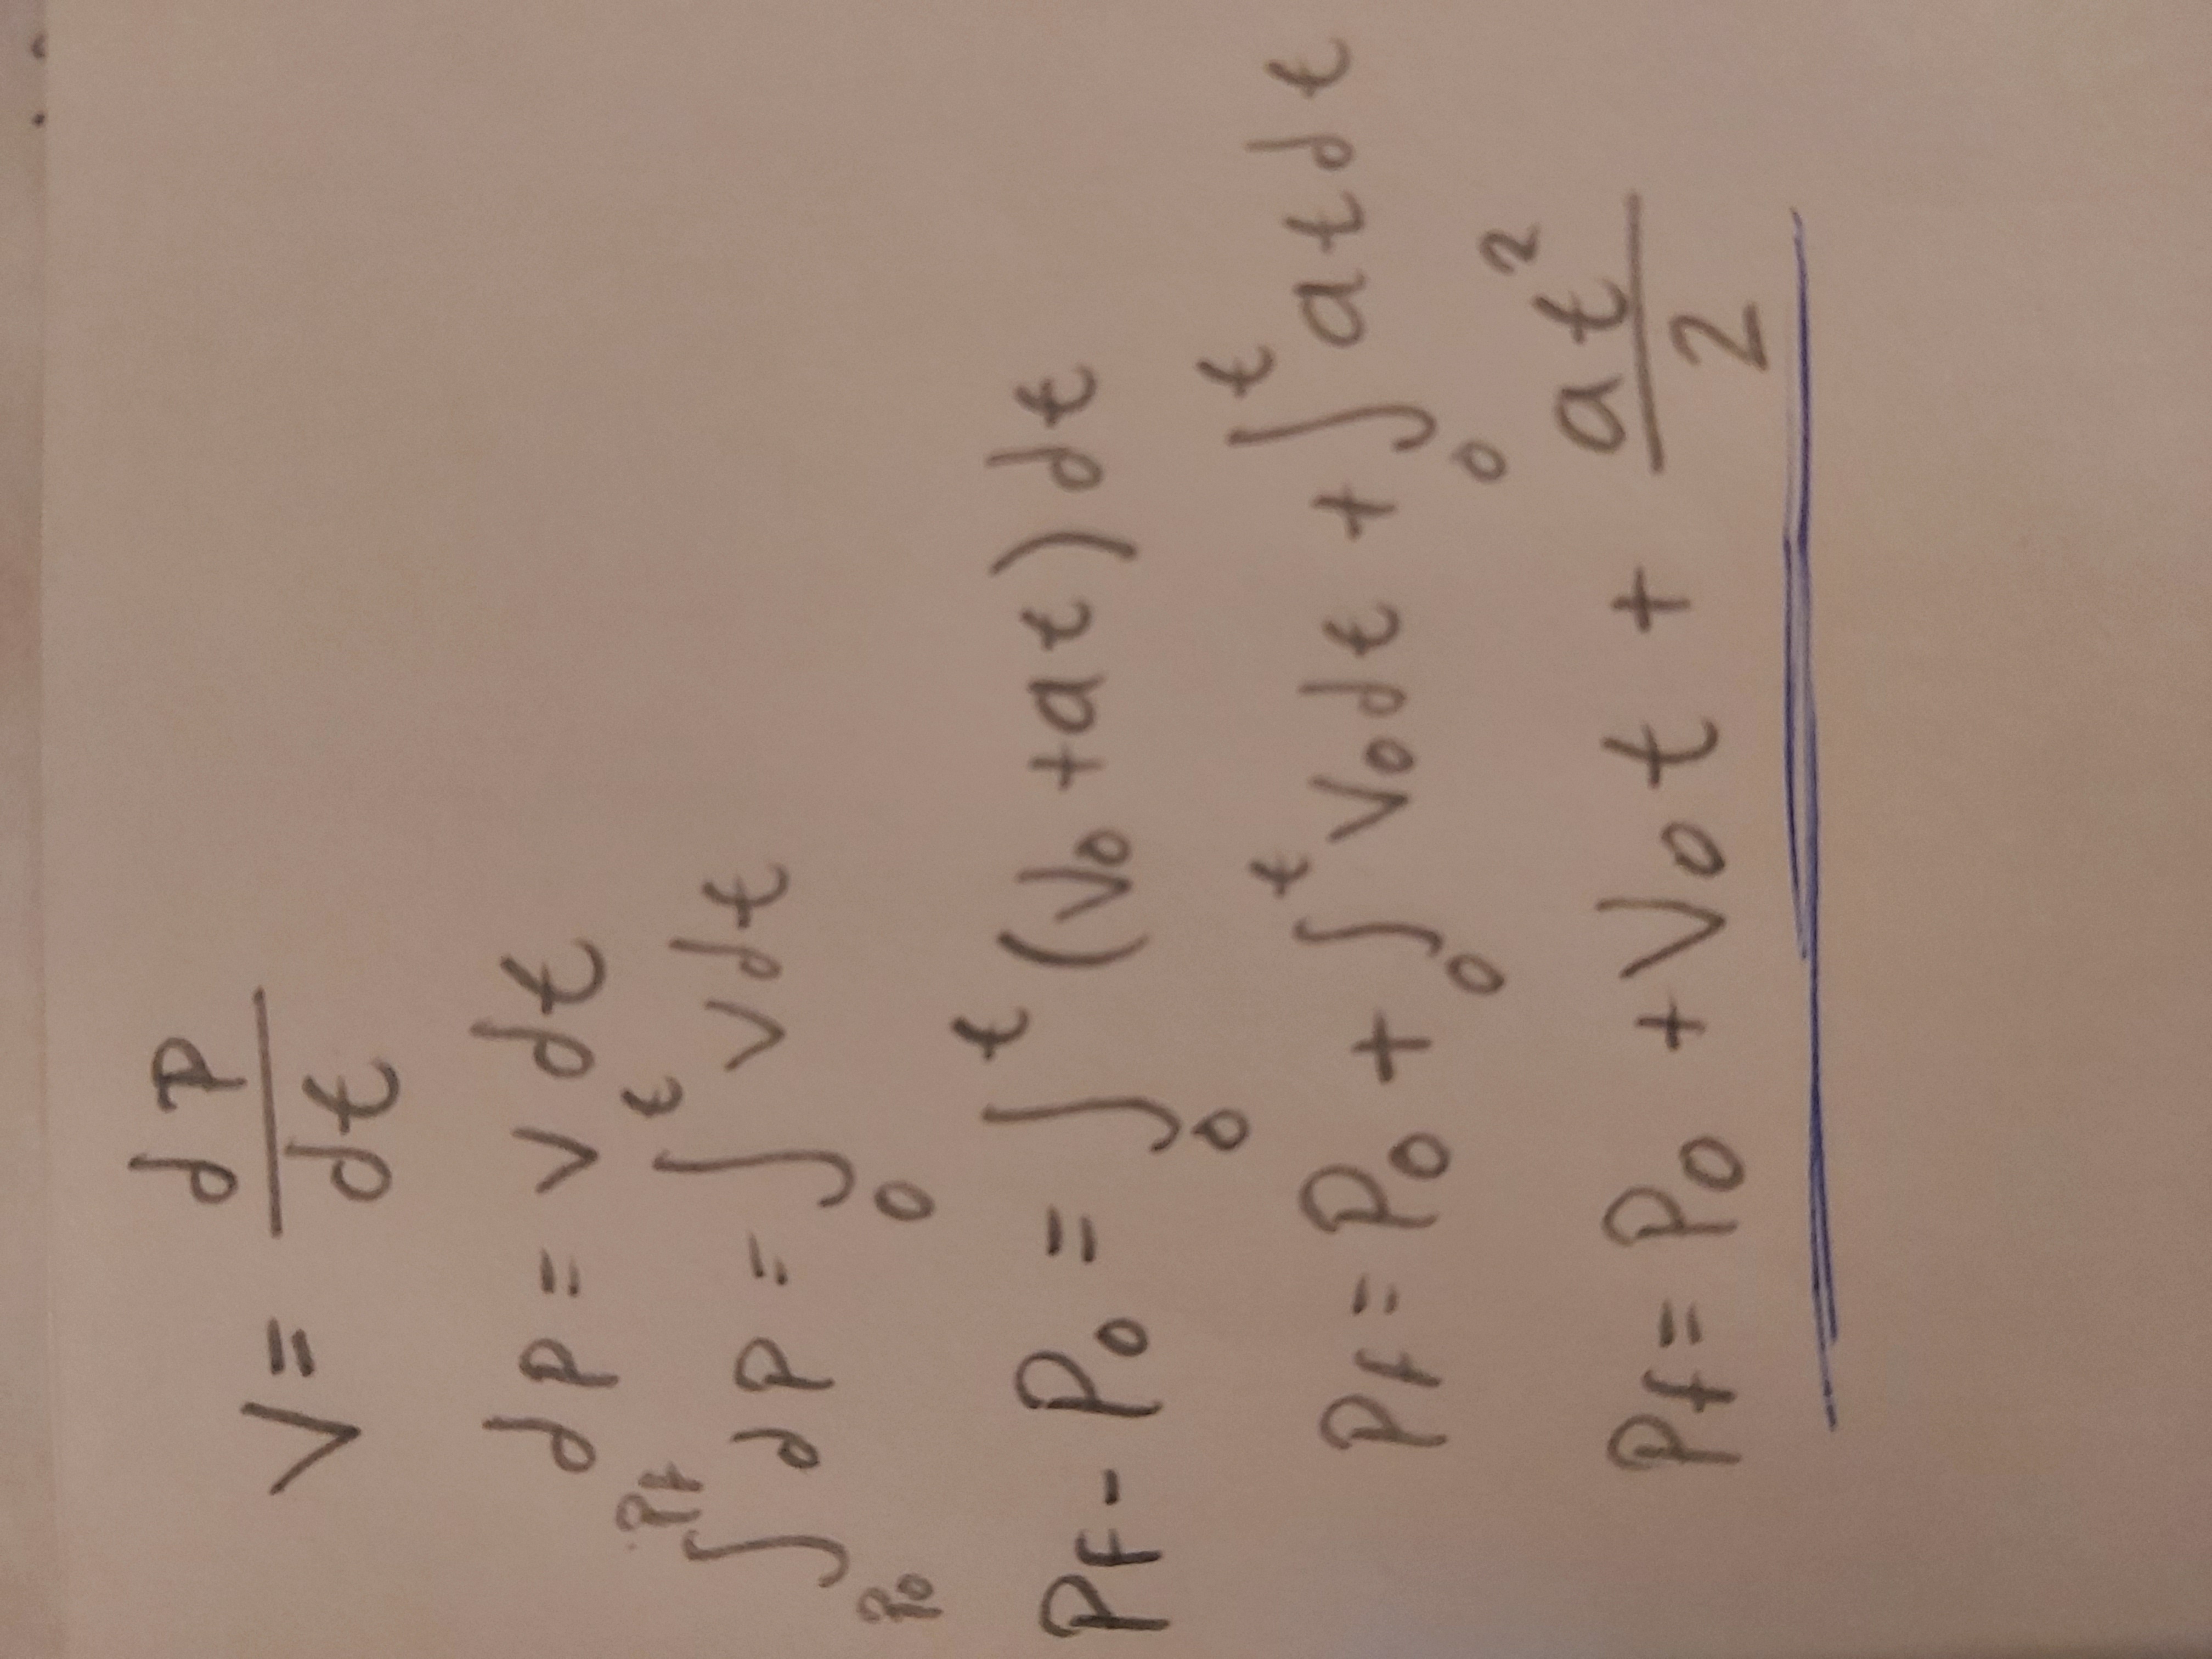 V = dP/dt
dp = v dt
∫_{P0}^{Pf} dp = ∫_0^t v dt
PF - P0 = ∫_0^t (V0 + at) dt
Pf = P0 + ∫_0^t V0 dt + ∫_0^t at dt
Pf = P0 + V0 t + at²/2